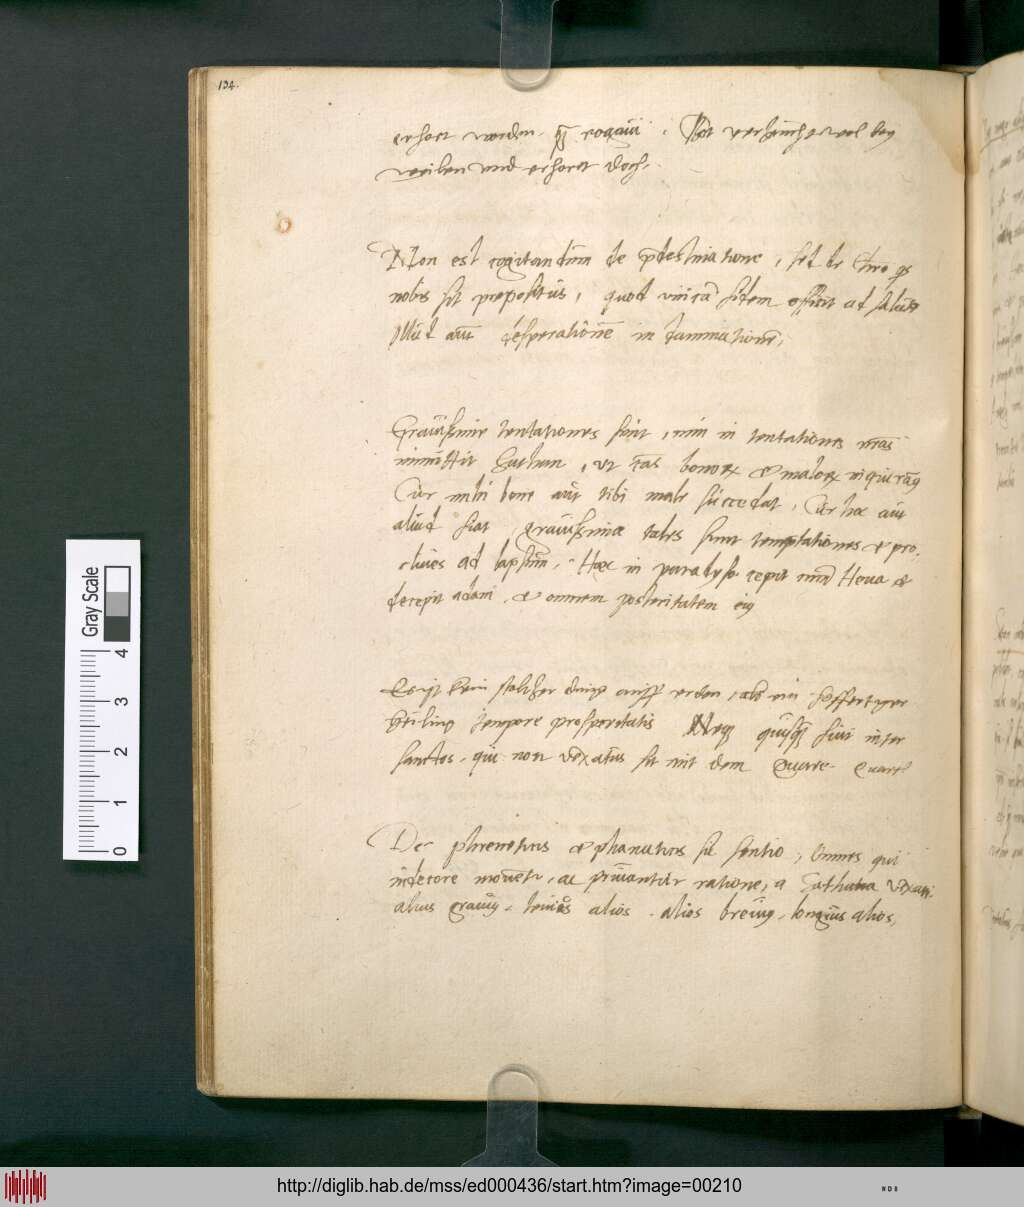 134.
erhort worden. qͣ rogavi. Gott verheisch wol bey
weilen und erhoret doch.
Non est cogitandum de p̄destinatione, sed de Christo
nobis sit propositus, quod vincat fidem efficit ad salutē
Illud aut̄ desperationē in damnationē.
Gravissime tentationes sunt, cum in tentationes nr̄as
immittit Sathan, ut c̄as bonorꝝ et malorꝝ inquiram9
Cur mihi bene aut tibi male succedat, Cur hoc aut
aliud fiat, gravissimae tales sunt temptationes et pro-
clives ad lapsum, Haec in paradyso cepit Heva et
decepit adam, et omnem posteritatem ei9
Es ist kein stoltzer ding auff erden, als ein
heiling tempore prosperitatis Neq3 quisq̄ fuit inter
sanctos, qui non vexatus sit mit dem Quare. Quare
De phreneticis et phanaticis sic sentio, Omnes qui
indecore moventur, ac privantur ratione, a Sathana vexari.
alios gravi9, levius alios, alios brevi9, longius alios,
Gray Scale
0 1 2 3 4
http://diglib.hab.de/mss/ed000436/start.htm?image=00210